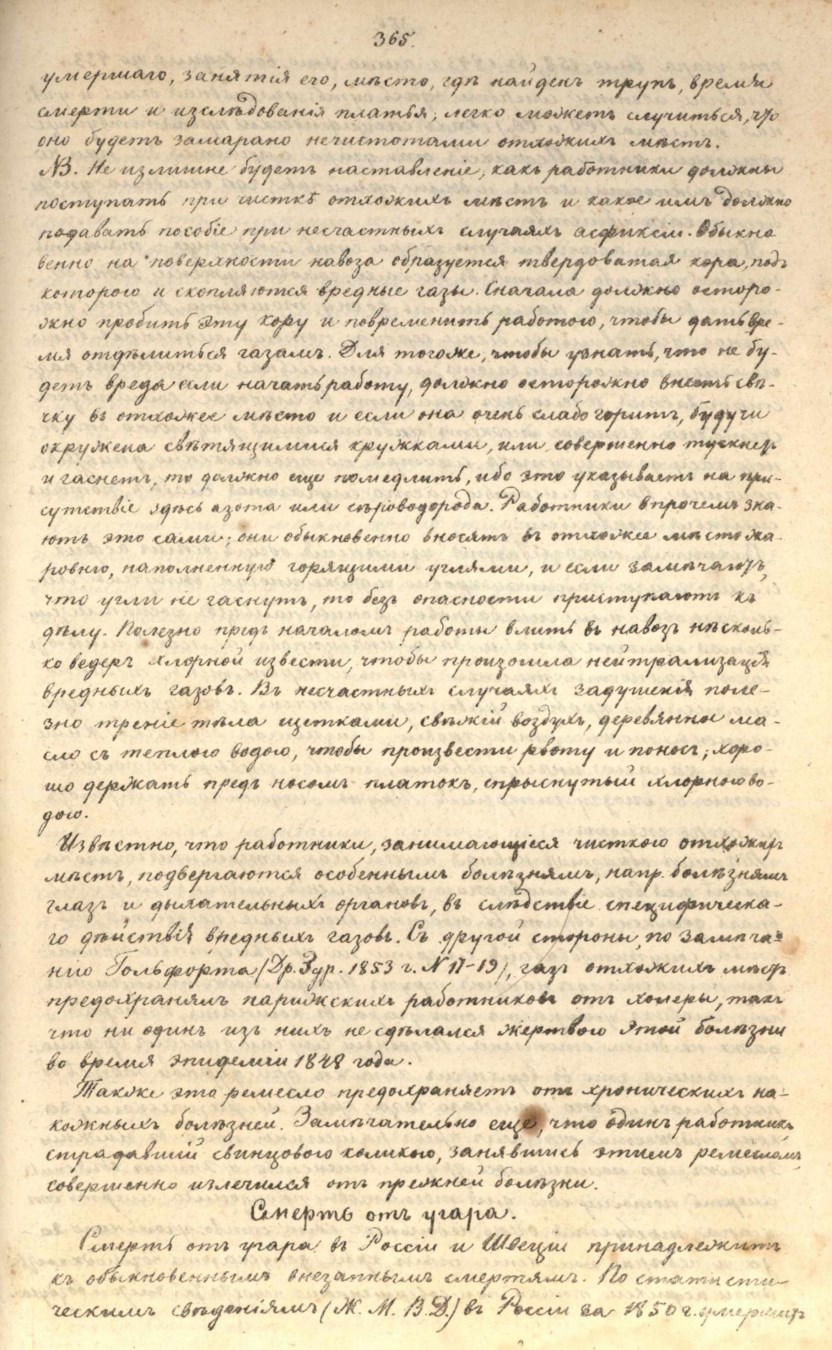 365.
умершаго, занятія его, мѣсто, гдѣ найденъ трупъ, время
смерти и изслѣдованія платья; легко можетъ случиться, что
оно будетъ замарано нечистотами отхожихъ мѣстъ.
NB. Не излишне будетъ наставленіе, какъ работники должны
поступать при чисткѣ отхожихъ мѣстъ и какое имъ должно
подавать пособіе при несчастныхъ случаяхъ асфиксіи. Обыкно
венно на поверхности навоза образуется твердоватая кора, подъ
которою и скопляются вредные газы. Сначала должно осторо-
жно пробить эту кору и повременить работою, чтобы дать вре-
мя отдѣлиться газамъ. Для тогоже, чтобы узнать, что не бу-
детъ вреда если начать работу, должно осторожно внесть свѣ-
чку въ отхожее мѣсто и если она очень слабо горитъ, будучи
окружена свѣтящимися кружками, или совершенно тускнетъ
и гаснетъ, то должно еще помедлить, ибо это указываетъ на при-
сутствіе здѣсь азота или сѣроводорода. Работники впрочемъ зна-
ютъ это сами; они обыкновенно вносятъ въ отхожее мѣсто жа-
ровню, наполненную горящими углями, и если замѣчаютъ,
что угли не гаснутъ, то безъ опасности приступаютъ къ
дѣлу. Полезно предъ началомъ работы влить въ навозъ нѣсколь-
ко ведеръ хлорной извести, чтобы произошла нейтрализація
вредныхъ газовъ. Въ несчастныхъ случаяхъ задушенія поле-
зно треніе тѣла щетками, свѣжій воздухъ, деревянное ма-
сло съ теплою водою, чтобы произвести рвоту и поносъ; хоро-
шо держать предъ носомъ платокъ, спрыснутый хлорною во-
дою.
Извѣстно, что работники, занимающіеся чисткою отхожихъ
мѣстъ, подвергаются особеннымъ болѣзнямъ, напр. болѣзнямъ
глазъ и дыхательныхъ органовъ, въ слѣдствіе специфическа-
го дѣйствія вредныхъ газовъ. Съ другой стороны, по замѣча-
нію Гольфорта (Др. Здр. 1853 г. N 17-19), газъ отхожихъ мѣстъ
предохранялъ парижскихъ работниковъ отъ холеры, такъ
что ни одинъ изъ нихъ не сдѣлался жертвою этой болѣзни
во время эпидеміи 1848 года.
Также это ремесло предохраняетъ отъ хроническихъ на-
кожныхъ болѣзней. Замѣчательно еще, что одинъ работникъ
страдавшій свинцовою коликою, занявшись этимъ ремесломъ
совершенно излечился отъ прежней болѣзни.
Смерть отъ угара.
Смерть отъ угара въ Россіи и Швеціи принадлежитъ
къ обыкновеннымъ внезапнымъ смертямъ. По статисти-
ческимъ свѣденіямъ (Ж. М. В. Д.) въ Россіи за 1850 г. умершихъ